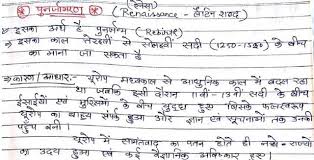 (लेखा)
* पुनर्जागरण * (Renaissance - लैटिन शब्द)
→ इसका अर्थ है पुनर्जन्म (Rebirth)
→ इसका काल तेरहवी से सोलहवी सदी (1250-1550) के बीच का माना जा सकता है
→ कारण/आधार:- यूरोप मध्यकाल से आधुनिक काल में बदल रहा था जबकि इसी दौरान 11वी-13वी सदी के बीच
ईसाईयों एवं मुस्लिमों के बीच युद्ध हुआ जिसके फलस्वरूप
यूरोप का बाह्य संपर्क हुआ और ज्ञान एवं सूचनाओं तक उनकी
पहुंच बनी।
यूरोप में सामंतवाद का पतन होते ही नये-2 राज्यों
का उदय हुआ एवं कई वैज्ञानिक आविष्कार हुए।